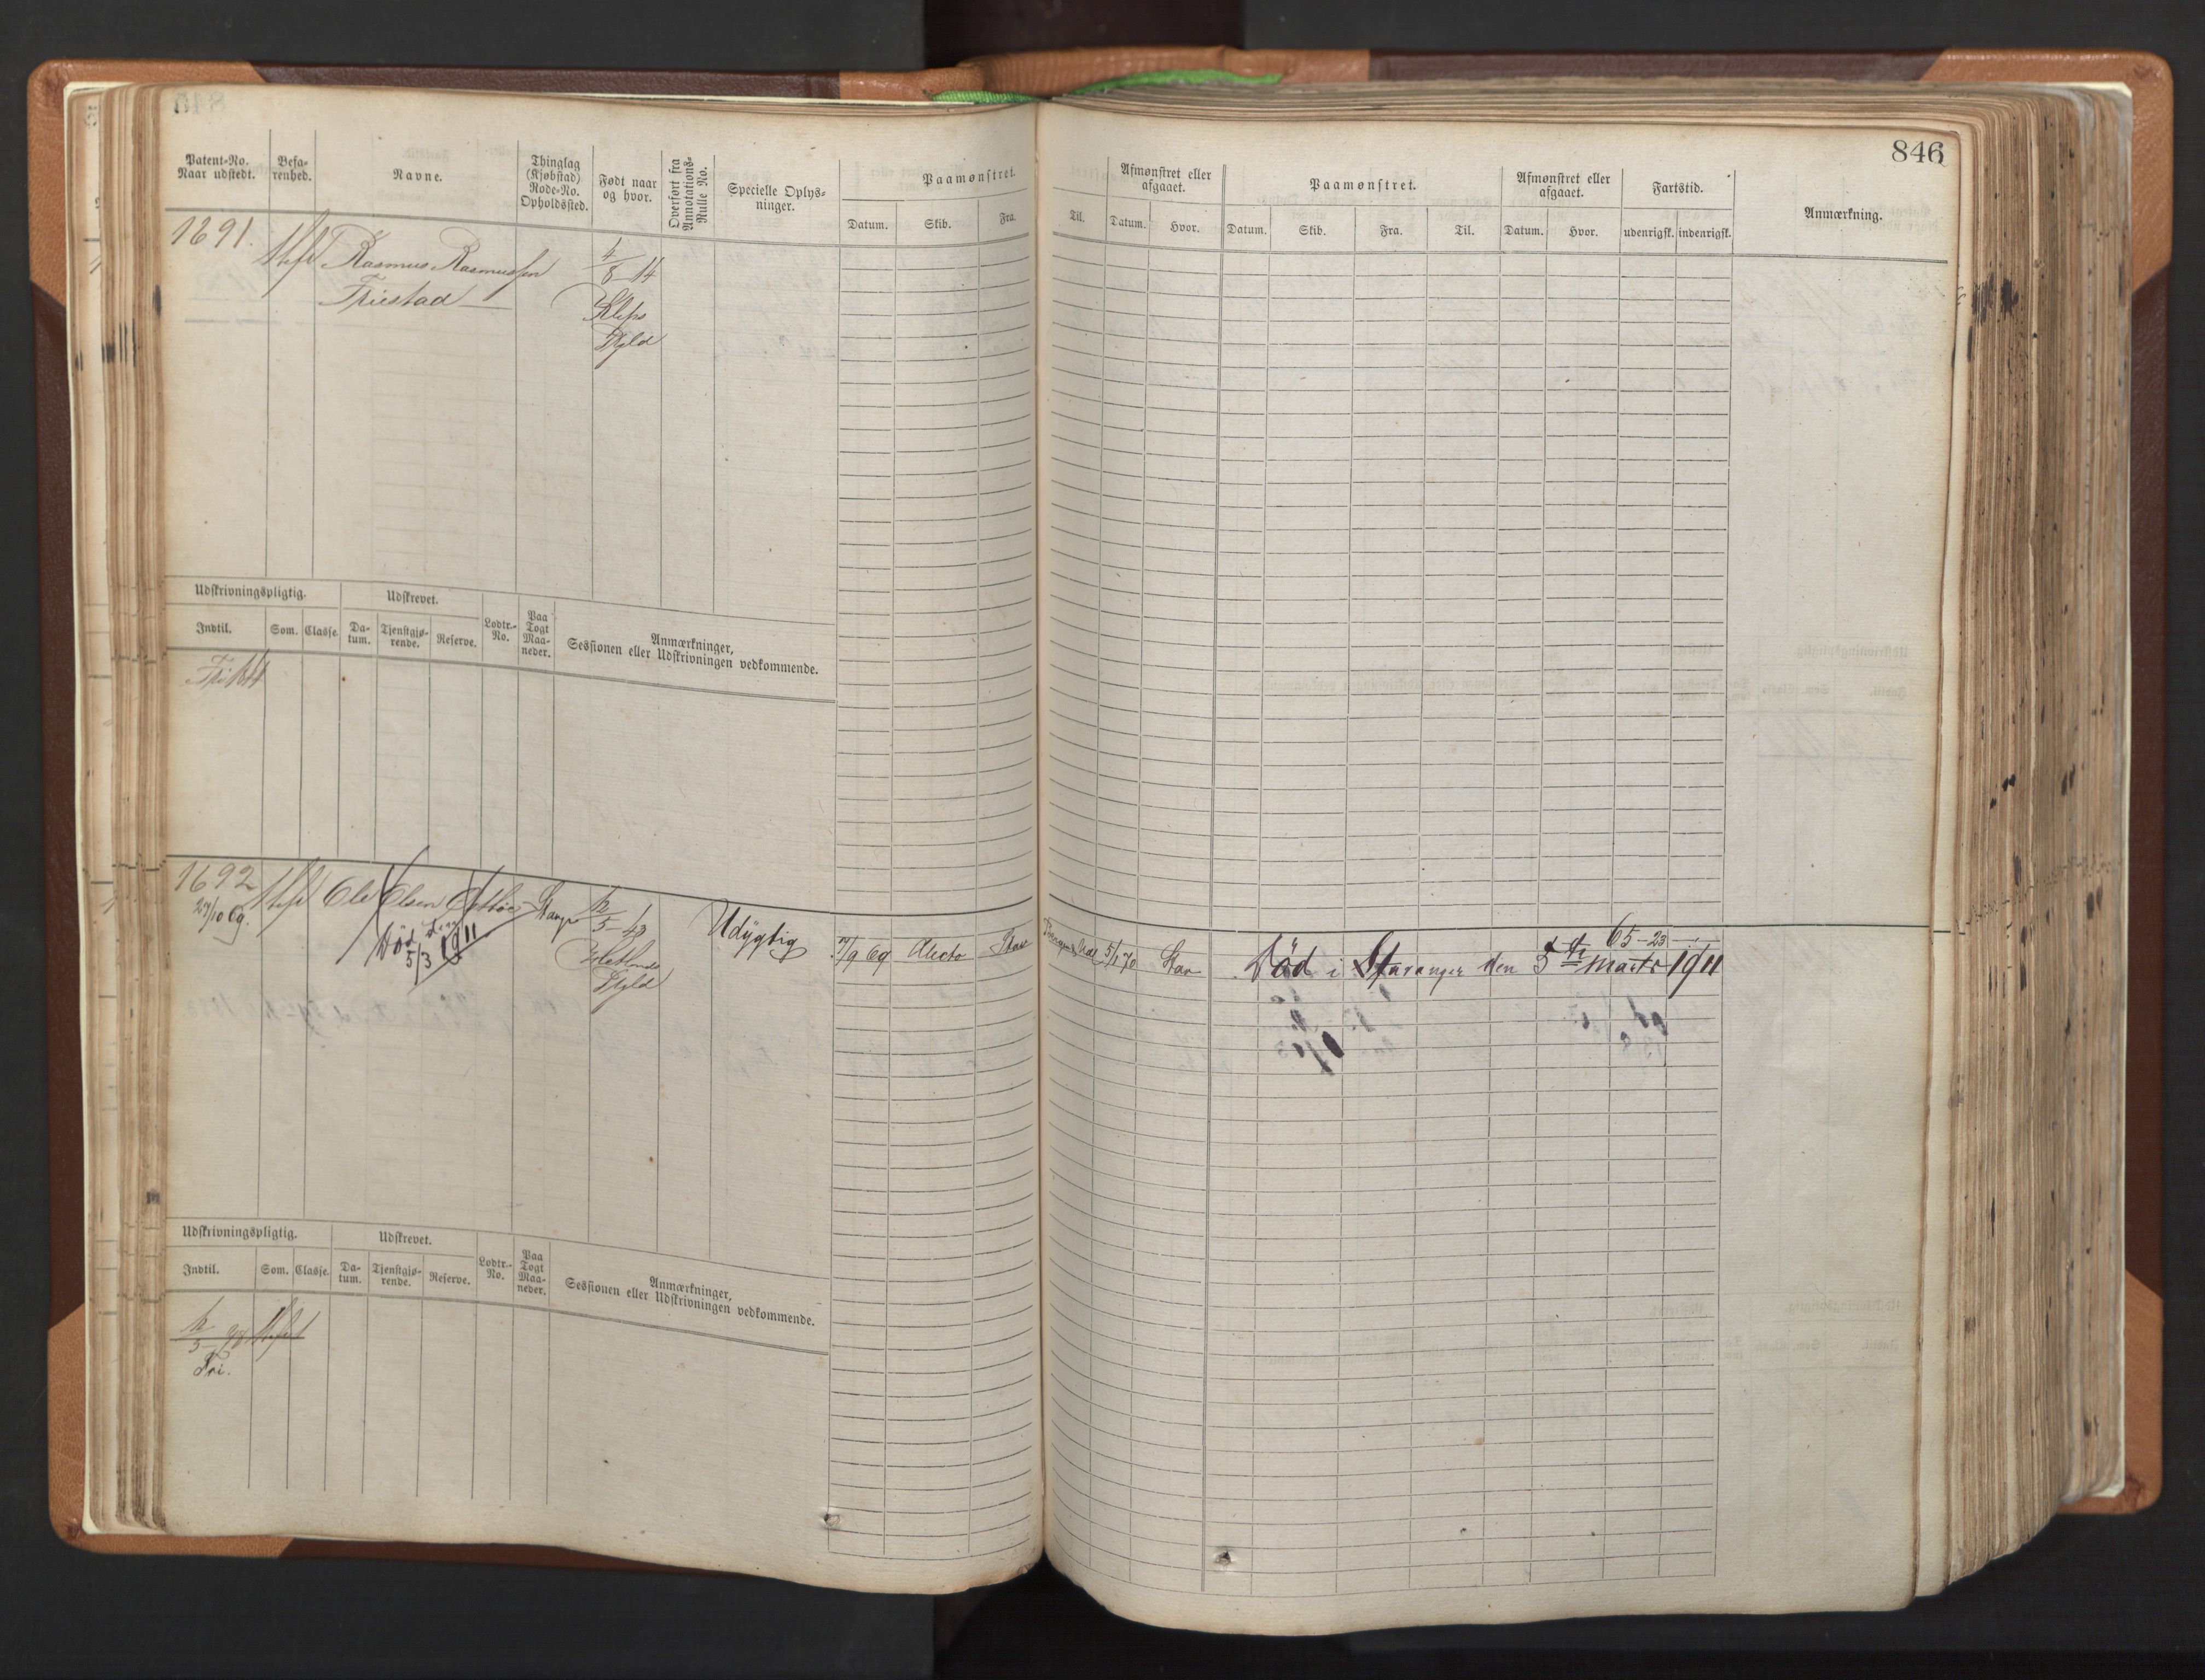 846
Patent-No.
Naar udstedt.
Befa-
renhed.
Navne.
Thinglag
(Kjøbstad)
Rode-No.
Opholdssted.
Født naar
og hvor.
Overført fra
Annotations-
Rulle No.
Specielle Oplys-
ninger.
Paamønstret.
Datum.
Skib.
Fra.
Til.
Afmønstret eller
afgaaet.
Datum.
Hvor.
Paamønstret.
Datum.
Skib.
Fra.
Til.
Afmønstret eller
afgaaet.
Datum.
Hvor.
Fartstid.
udenrigsk.
indenrigsk.
Anmærkning.
1691.
Rasmus Rasmussen
Friestad
4/8 - 14
Klep
Udskrivningspligtig.
Udskrevet.
Indtil.
Som.
Classe.
Da-
tum.
Tjenstgjø-
rende.
Reserve.
Lodtr.-
No.
Paa
Togt
Maa-
neder.
Anmærkninger,
Sessionen eller Udskrivningen vedkommende.
1692
27/10 69.
Ole Olsen
Død
5/3 1911
5 - 43
Hetlands
Udygtig
7/9 69
Alecto
Stav
5/1 70
Stav
65 - 23
Död i Stavanger den 5te Marts 1911
Udskrivningspligtig.
Udskrevet.
Indtil.
Som.
Classe.
Da-
tum.
Tjenstgjø-
rende.
Reserve.
Lodtr.-
No.
Paa
Togt
Maa-
neder.
Anmærkninger,
Sessionen eller Udskrivningen vedkommende.
5 - 98
Fri.